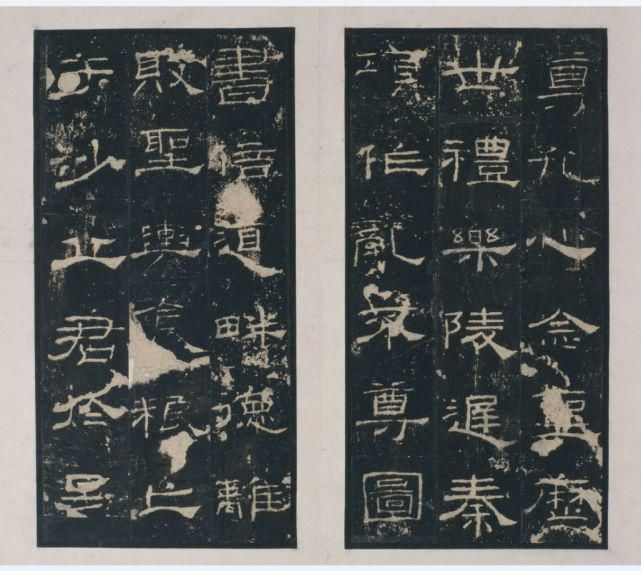 尊孔心念聖歷
世禮樂陵遲秦
項作亂不尊圖
書倍道畔德離
敗聖輿食粮亡
于沙丘君於是